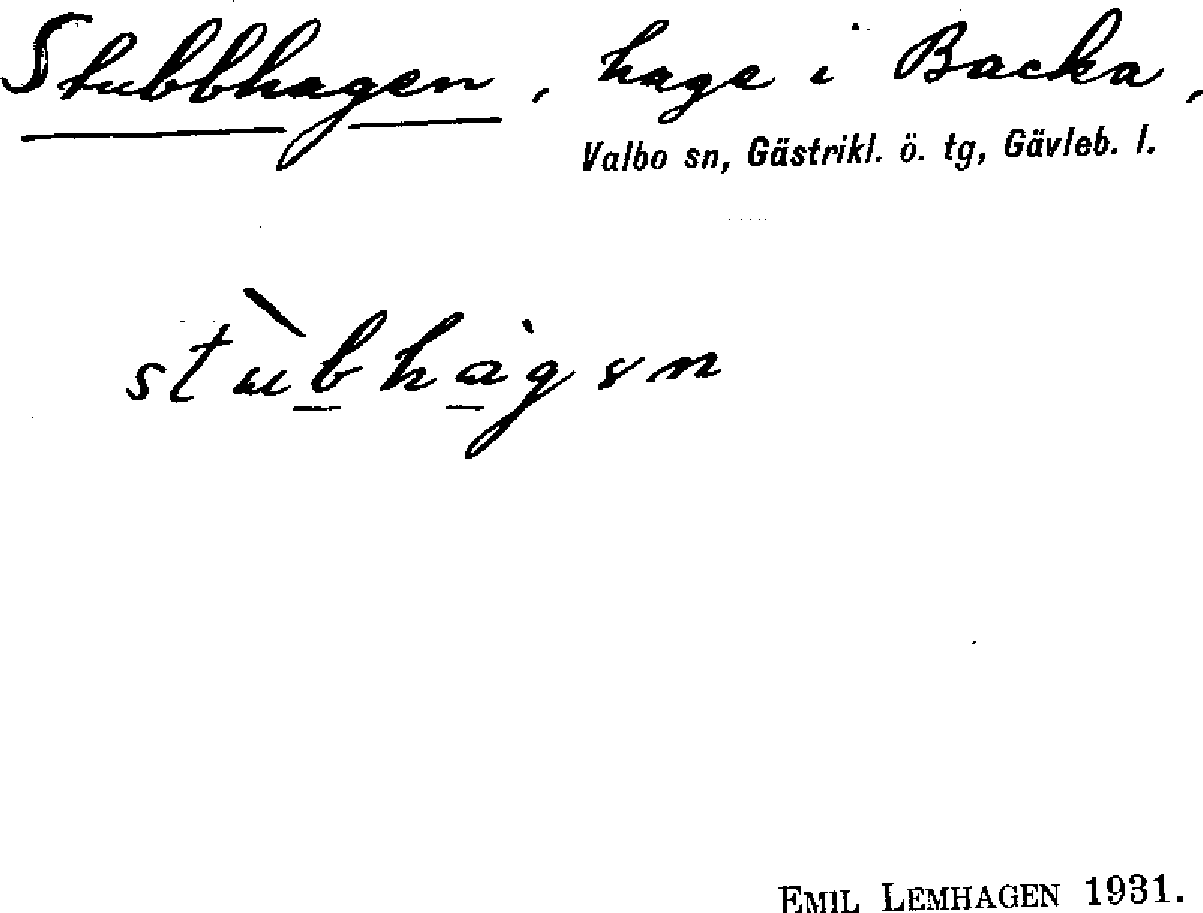 Stubbhagen, hage i Backa,
Valbo sn, Gästrikl. ö. tg, Gävleb. l.
stùbhàgən
EMIL LEMHAGEN 1931.